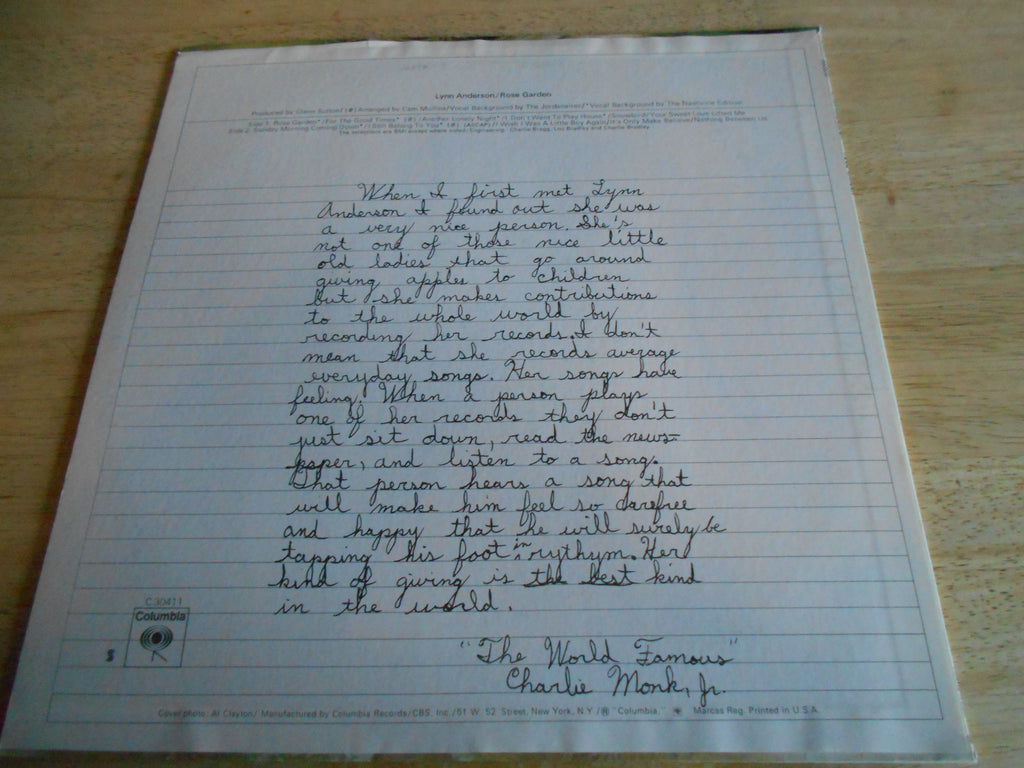 Lynn Anderson/Rose Garden
Produced by Glenn Sutton/(#) Arranged by Cam Mullins/Vocal Background by The Jordanaires/* Vocal Background by The Nashville Edition
Side 1: Rose Garden* /For The Good Times* (#)/Another Lonely Night*/I Don't Want To Play House*/Your Sweet Love Lifted Me
Side 2: Sunday Morning Coming Down*/I Still Belong To You* (#) (ASCAP)/I Wish I Was A Little Boy Again/It's Only Make Believe/Nothing Between Us
The selections are BMI except where noted/Engineering: Charlie Bragg, Lou Bradley and Charlie Bradley
When I first met Lynn
Anderson I found out she was
a very nice person. She's
not one of those nice little
old ladies that go around
giving apples to children
but she makes contributions
to the whole world by
recording her records. I don't
mean that she records average
everyday songs. Her songs have
feeling. When a person plays
one of her records they don't
just sit down, read the news-
paper, and listen to a song.
That person hears a song that
will make him feel so carefree
and happy that he will surely be
tapping his foot in rythym. Her
kind of giving is the best kind
in the world.
"The World Famous"
Charlie Monk, Jr.
C30411
Columbia
S
Cover photo: Al Clayton/ Manufactured by Columbia Records/CBS, Inc./51 W. 52 Street, New York, N.Y./® "Columbia," Marcas Reg. Printed in U.S.A.